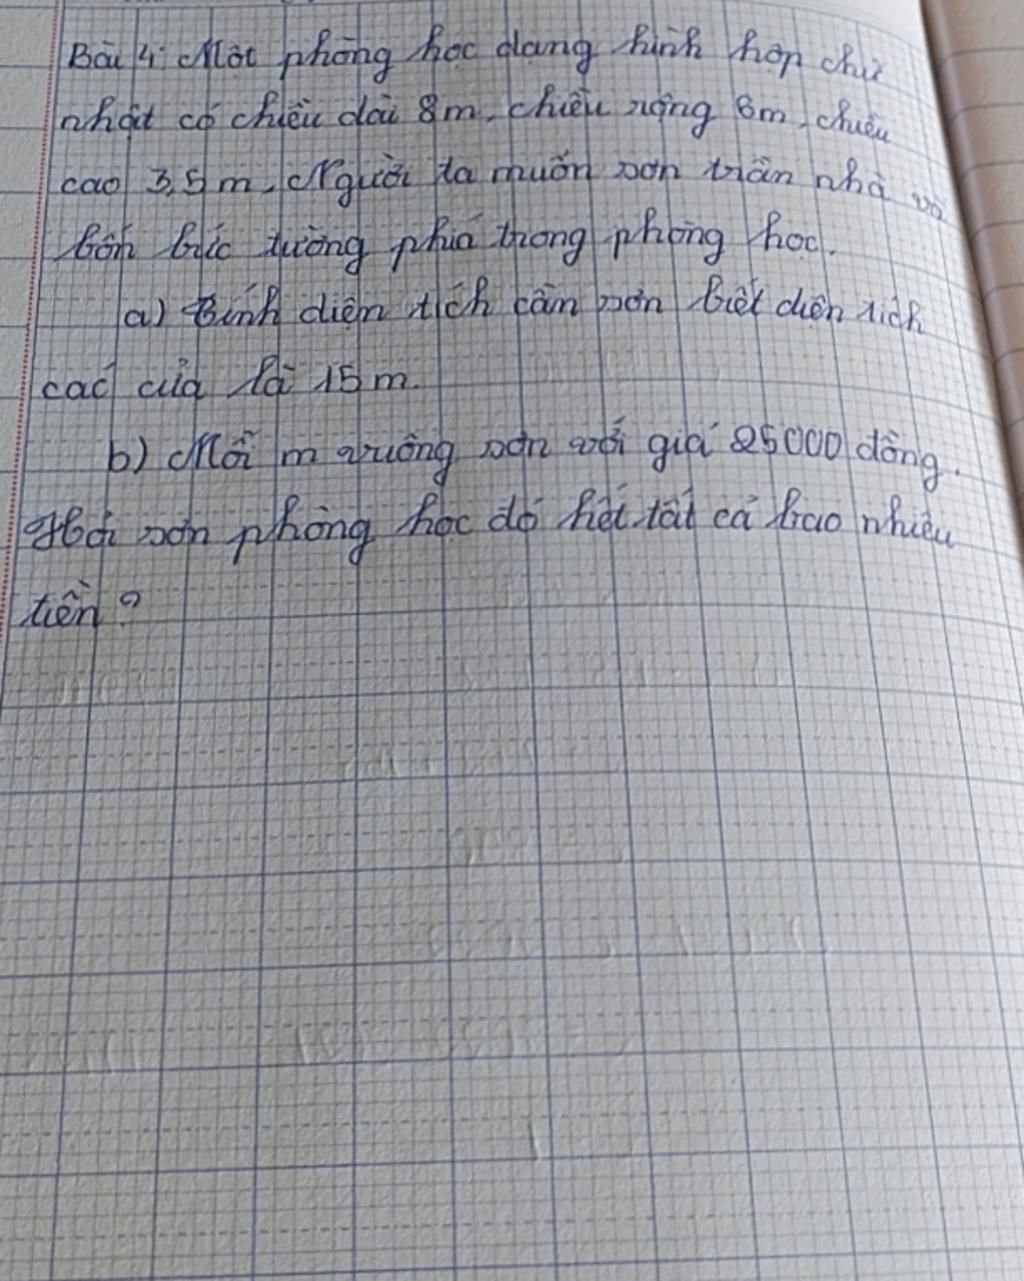 Bài 4: Một phòng học dạng hình hộp chữ
nhật có chiều dài 8m, chiều rộng 6m, chiều
cao 3,5 m. Người ta muốn sơn trần nhà và
bốn bức tường phía trong phòng học.
a) Tính diện tích cần sơn biết diện tích
các cửa là 15 m.
b) Mỗi m vuông sơn với giá 25000 đồng.
Hỏi sơn phòng học đó hết tất cả bao nhiêu
tiền?